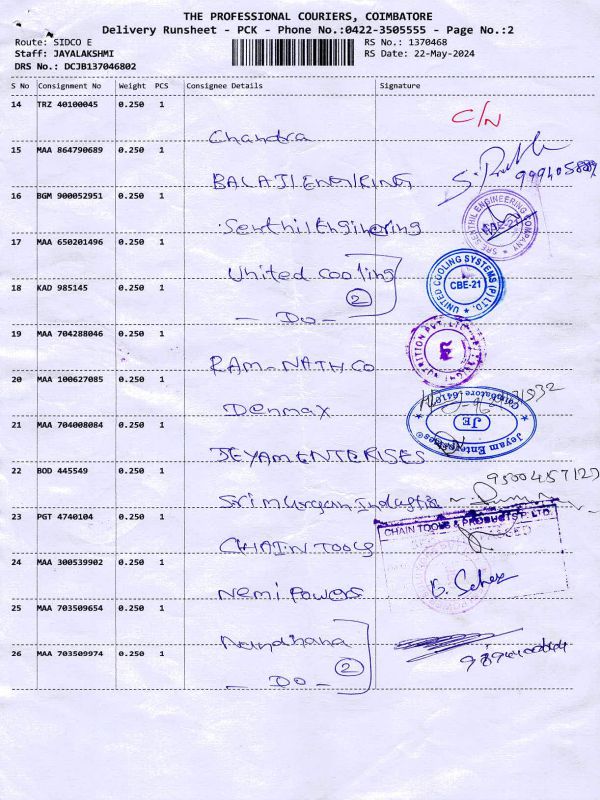 THE PROFESSIONAL COURIERS, COIMBATORE
Delivery Runsheet - PCK - Phone No.:0422-3505555 - Page No.:2
Route: SIDCO E
RS No.: 1370468
Staff: JAYALAKSHMI
RS Date: 22-May-2024
DRS No.: DCJB137046802
S No Consignment No Weight PCS Consignee Details Signature
14 TRZ 40100045 0.250 1
Chandra C/N
15 MAA 864790689 0.250 1
BALAJI
16 BGM 900052951 0.250 1
Senthil Enginering
SRE SENTHIL ENGINEERING COMPANY
17 MAA 650201496 0.250 1
United cooling
UNITED COOLING SYSTEMS (P) LTD.
CBE-21
18 KAD 985145 0.250 1
2
- Do -
19 MAA 704288046 0.250 1
RAM-NATH.CO
20 MAA 100627085 0.250 1
Denmax
21 MAA 704008084 0.250 1
JEYAM ENTERISES
Jeyam Enterprises
Coimbatore
JE
22 BOD 445549 0.250 1
Sri Murgan Industris
23 PGT 4740104 0.250 1
CHAIN TOOLS
CHAIN TOOLS & PRODUCTS P. LTD.
24 MAA 300539902 0.250 1
Nemi Powers
25 MAA 703509654 0.250 1
Nandhana
26 MAA 703509974 0.250 1
2
- DO -